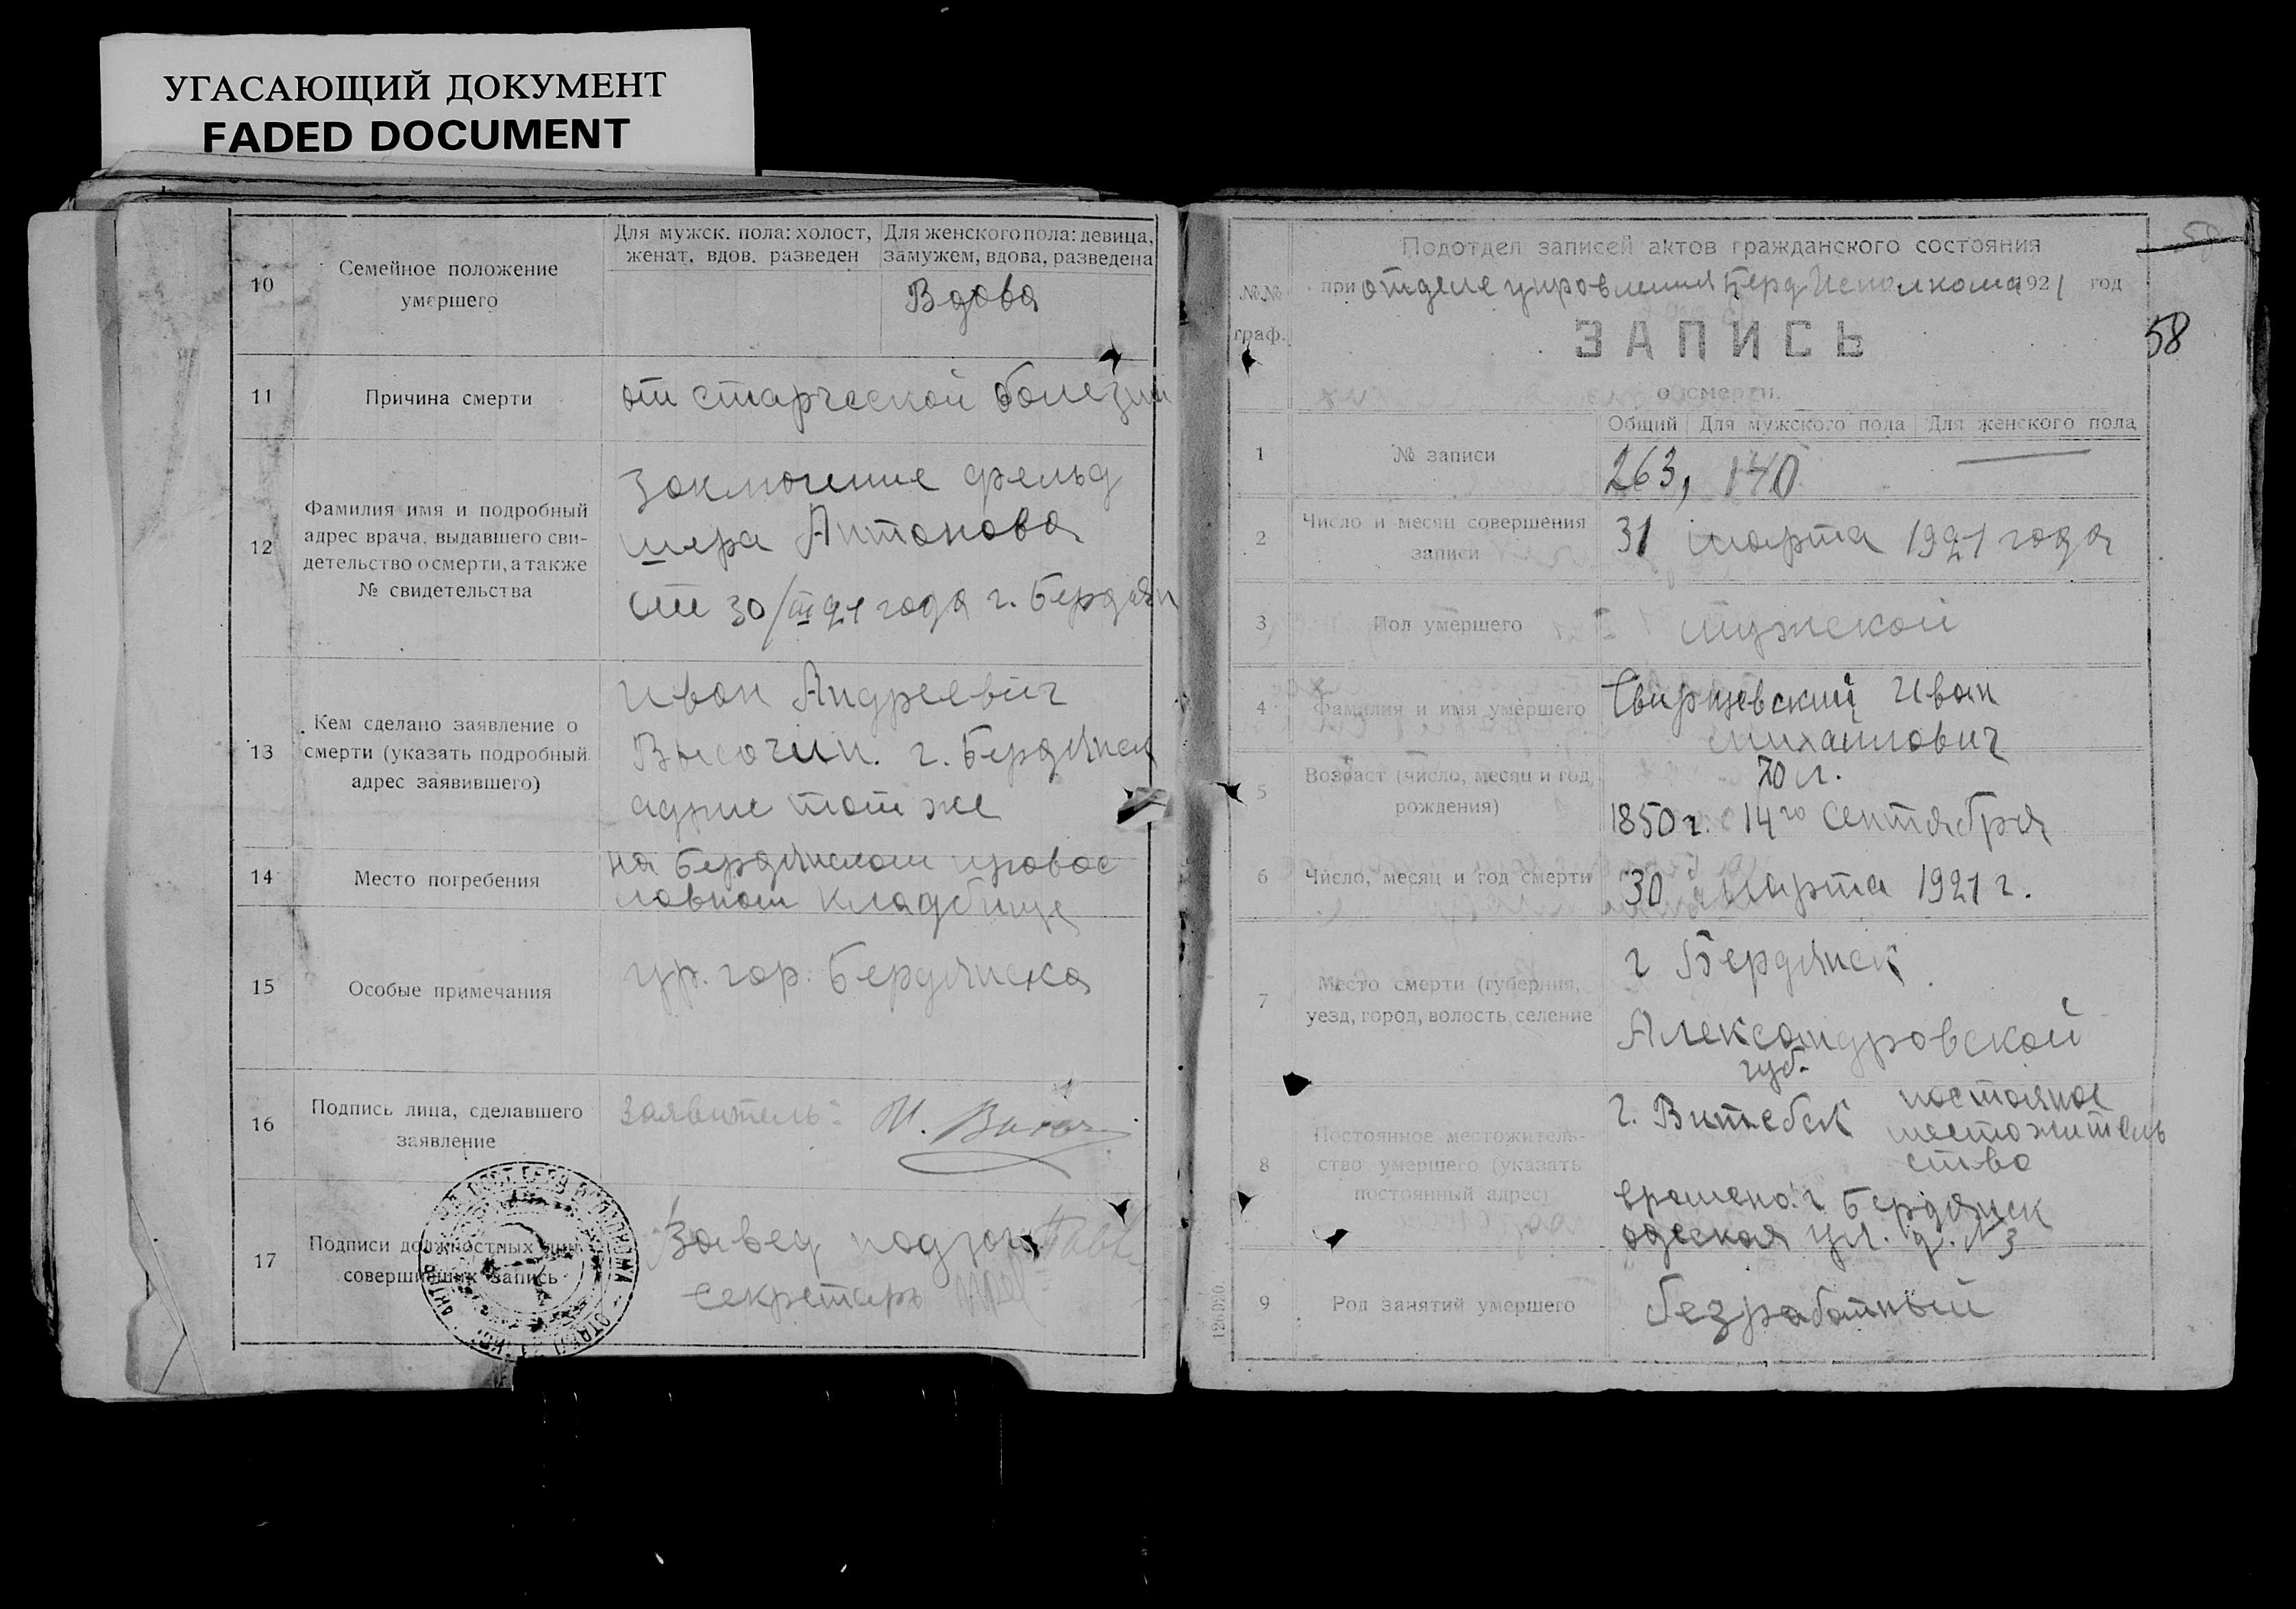 УГАСАЮЩИЙ ДОКУМЕНТ
FADED DOCUMENT
10
Семейное положение
умершего
Для мужск. пола: холост,
женат, вдов. разведен
Для женского пола: девица,
замужем, вдова, разведена
Вдова
11
Причина смерти
от старческой болезни
12
Фамилия имя и подробный
адрес врача, выдавшего сви-
детельство о смерти, а также
№ свидетельства
Заключение фельд
шера Антонова
от 30/III 21 года г. Бердян
13
Кем сделано заявление о
смерти (указать подробный
адрес заявившего)
Иван Андреевич
Высочин. г. Бердянск
адрис тот же
14
Место погребения
на Бердянском провос
лавном кладбище
15
Особые примечания
гр. гор. Бердянска
16
Подпись лица, сделавшего
заявление
Заявитель: И.
17
Подписи должностных лиц
совершивших запись
Завед подзаг
Секретарь
Подотдел записей актов гражданского состояния
при отделе управления Берд Исполкома 1921 год
№№
граф.
ЗАПИСЬ
о смерти.
58
58
Общий Для мужского пола Для женского пола
1
№ записи
263, 140 —
2
Число и месяц совершения
записи
31 марта 1921 года
3
Пол умершего
мужской
4
Фамилия и имя умершего
Свиржевский Иван
Михаилович
5
Возраст (число, месяц и год
рождения)
70 л.
1850 г. 14го Сентября
6
Число, месяц и год смерти
30 марта 1921 г.
7
Место смерти (губерния,
уезд, город, волость, селение
г Бердянск
Александровской
губ.
8
Постоянное местожитель-
ство умершего (указать
постоянный адрес)
г. Витебск постояное
местожитель
ство
времено г Бердянск
одеская ул. д. № 3
9
Род занятий умершего
безработный